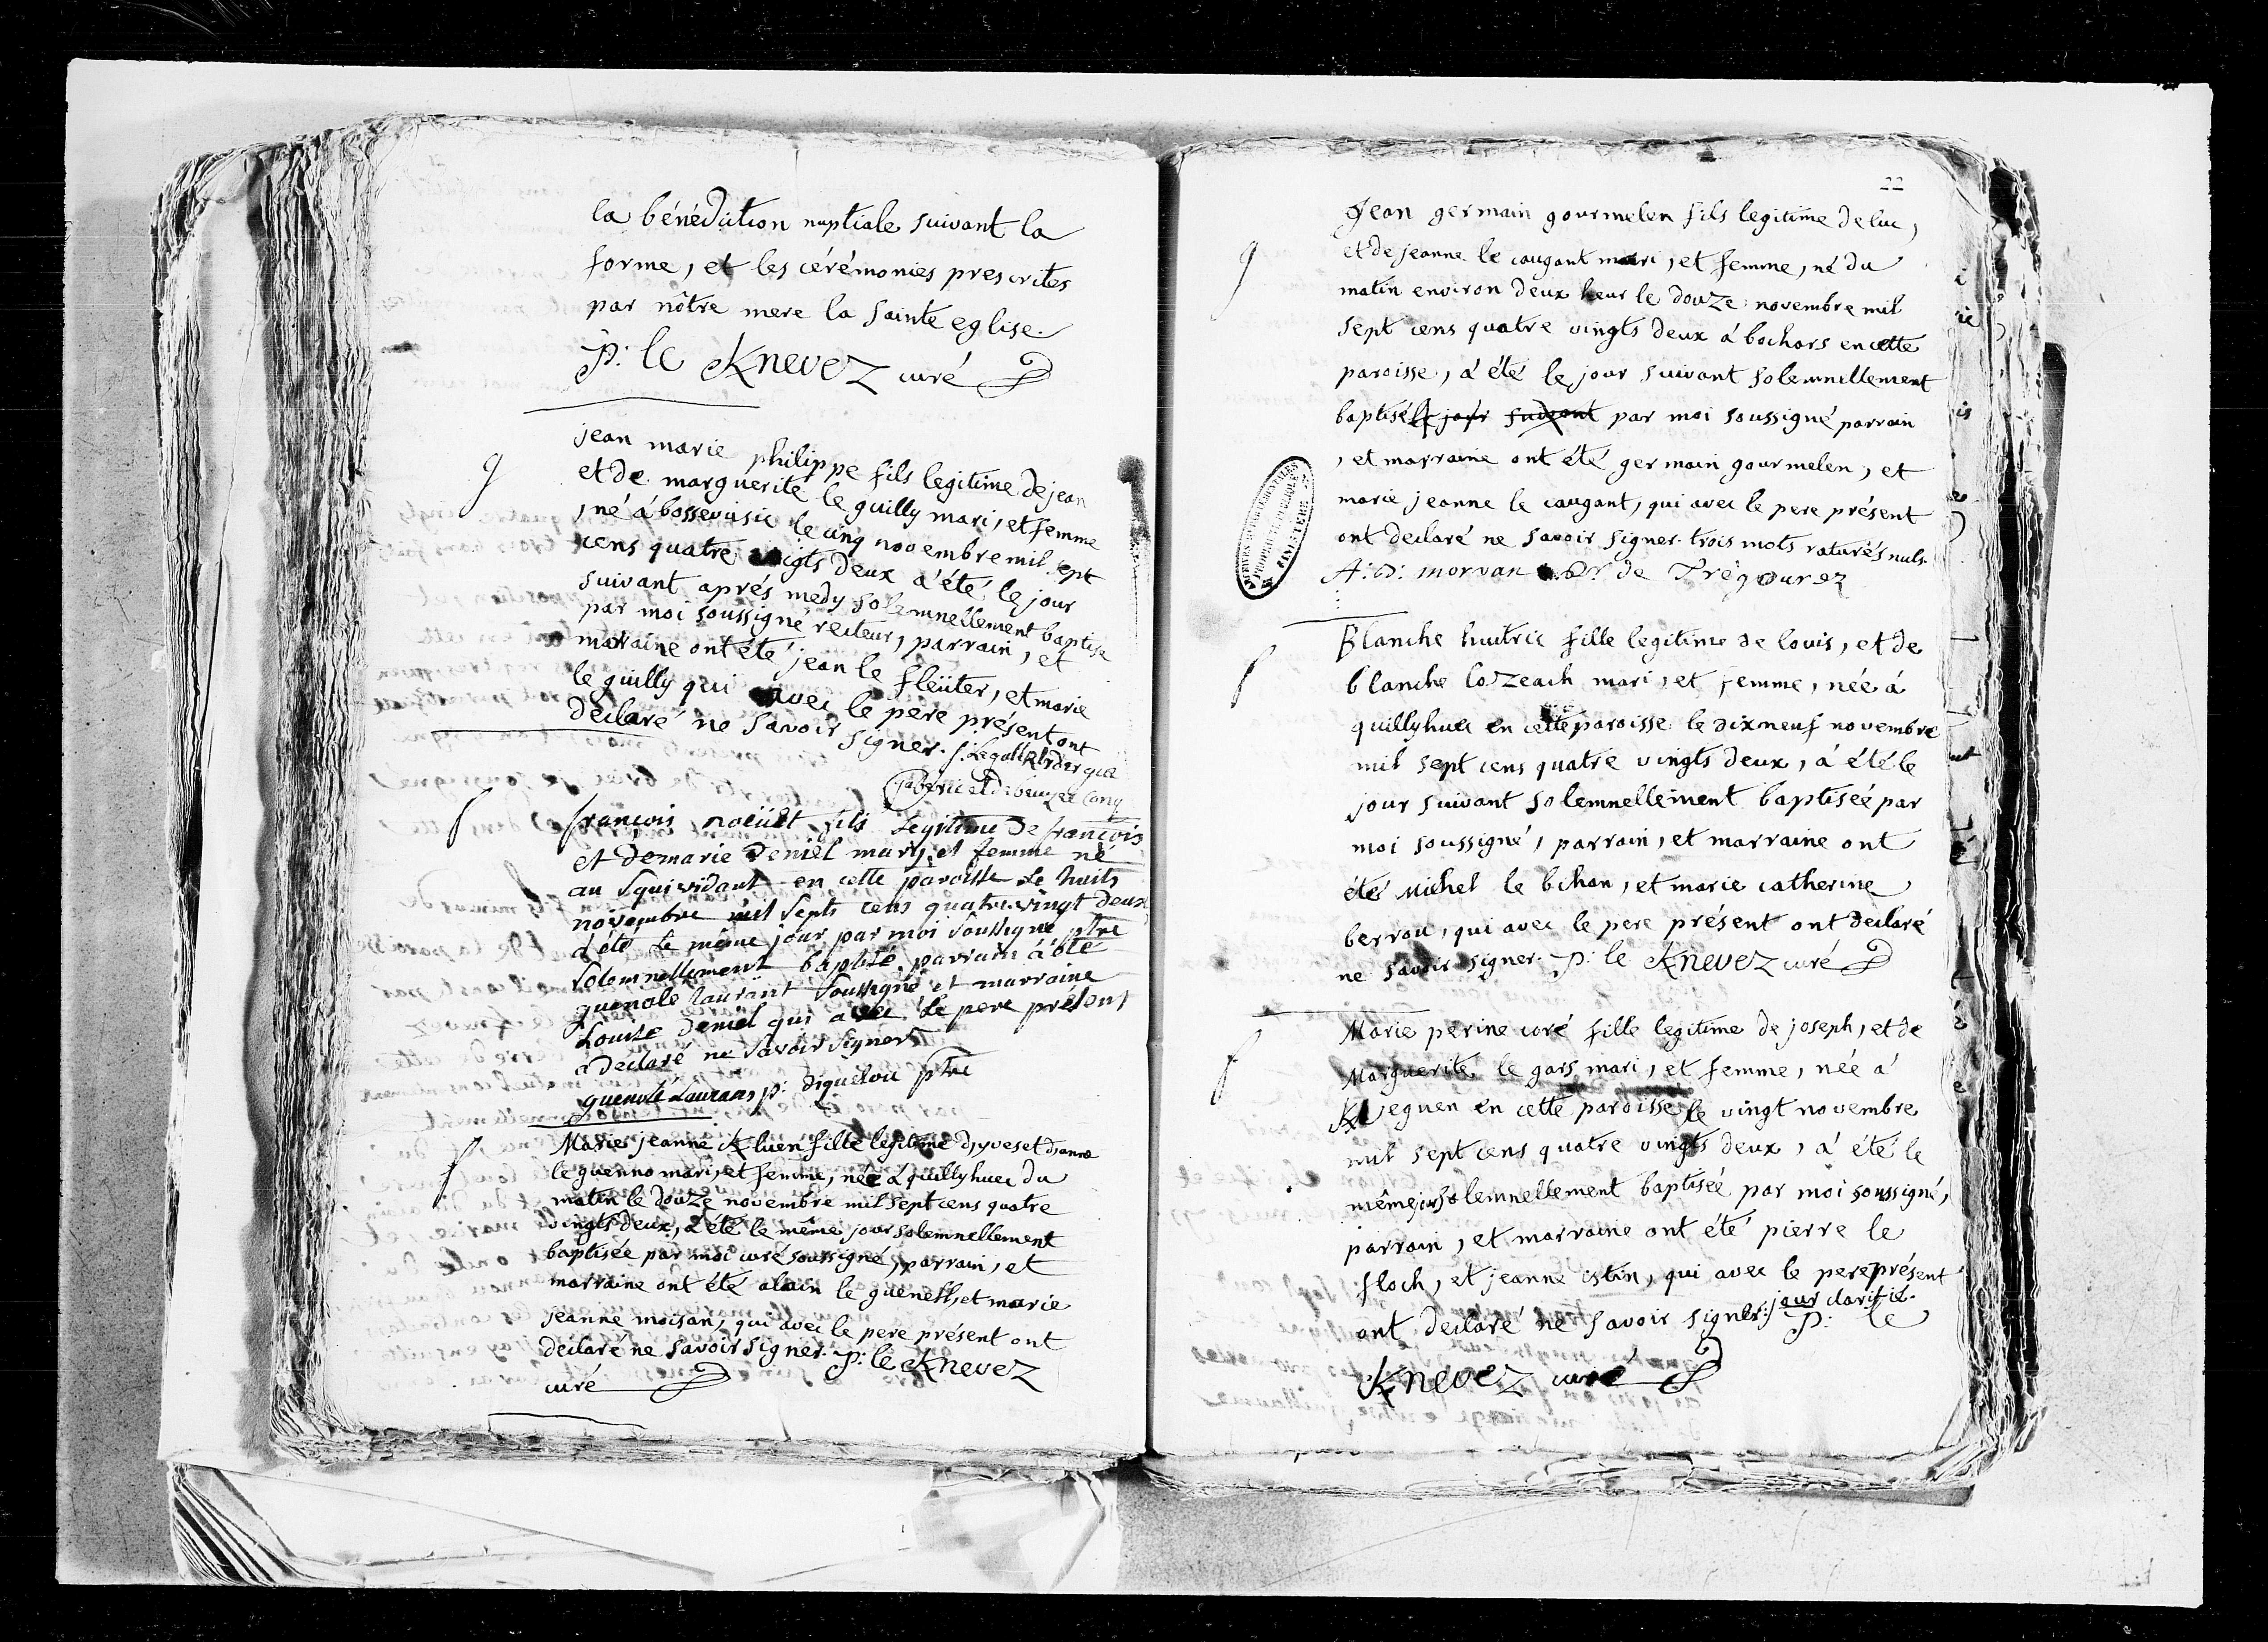 la bénédiction nuptiale suivant la
forme, et les cérémonies prescrites
par nôtre mere la sainte eglise.
p: le Knevez curé
g
jean marie philippe fils legitime de jean
et de marguerite le guilly mari, et femme
, né á bossevisic le cinq novembre mil sept
cens quatre vingts deux a été le jour
suivant aprés medy solemnellement baptise
par moi soussigné recteur, parrain, et
marraine ont été jean le fleüter, et marie
le guilly qui avec le pere présent ont
declaré ne savoir signer.
françois fils legitime de françois
et de marie deniel mary et femme né
au squividant en cette paroisse le huits
novembre mil septs cens quatre vingt deux
a été le même jour par moi soussigné ptre
solemnellement baptisé. parrain á été
guenole laurant soussigné et marraine
Louise deniel qui avec le pere présent
a declaré ne savoir signer
guenolé Laurans p: diquelou ptre
Marie jeanne Kluen fille legitime d'yves et d'anne
le guenno mari, et femme, née á quillyhuec du
matin le douze novembre mil sept cens quatre
vingts deux, a été le même jour solemnellement
baptisée par moi curé soussigné, parrain, et
marraine ont été alain le gueneff, et marie
jeanne moisan, qui avec le pere présent ont
declaré ne savoir signer. p: le Knevez
curé
22
g
Jean germain gourmelen fils legitime de luc,
et de jeanne le caugant mari, et femme, né du
matin environ deux heur le douze novembre mil
sept cens quatre vingts deux á bochors en cette
paroisse, á été le jour suivant solemnellement
baptisé le jour suivant par moi soussigné parrain
, et marraine ont été germain gourmelen, et
marie jeanne le caugant, qui avec le pere présent
ont declaré ne savoir signer. trois mots raturés nuls.
A: D: morvan Dr de Trégourez
Blanche huitric fille legitime de louis, et de
blanche lozeach mari, et femme, née á
quillyhuec en cette paroisse le dix neuf novembre
mil sept cens quatre vingts deux, á été le
jour suivant solemnellement baptisée par
moi soussigné, parrain, et marraine ont
été Michel le bihan, et marie catherine
berrou, qui avec le pere présent ont declaré
ne savoir signer. p: le Knevez curé
Marie perine coré fille legitime de joseph, et de
Marguerite le gars mari, et femme, née á
Kveguen en cette paroisse le vingt novembre
mil sept cens quatre vingts deux, á été le
même jour solemnellement baptisée par moi soussigné,
parrain, et marraine ont été pierre le
floch, et jeanne istin, qui avec le pere présent
ont declaré ne savoir signer: jour clarifié. p: le
Knevez curé